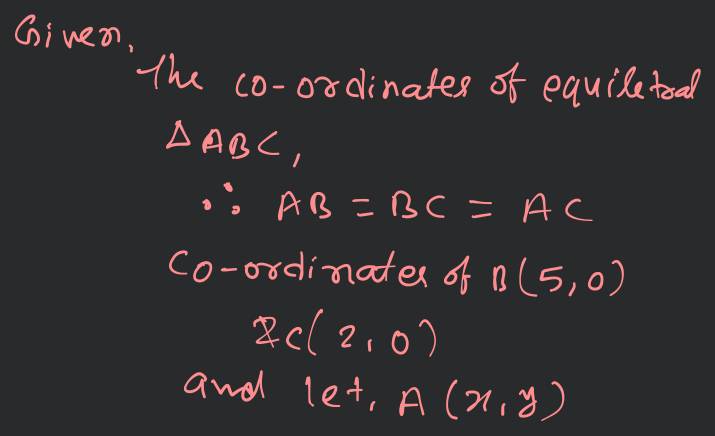 Given,
The co-ordinates of equiletral
Δ ABC,
∴ AB = BC = AC
Co-ordinates of B(5,0)
& C(2,0)
and let, A (x,y)